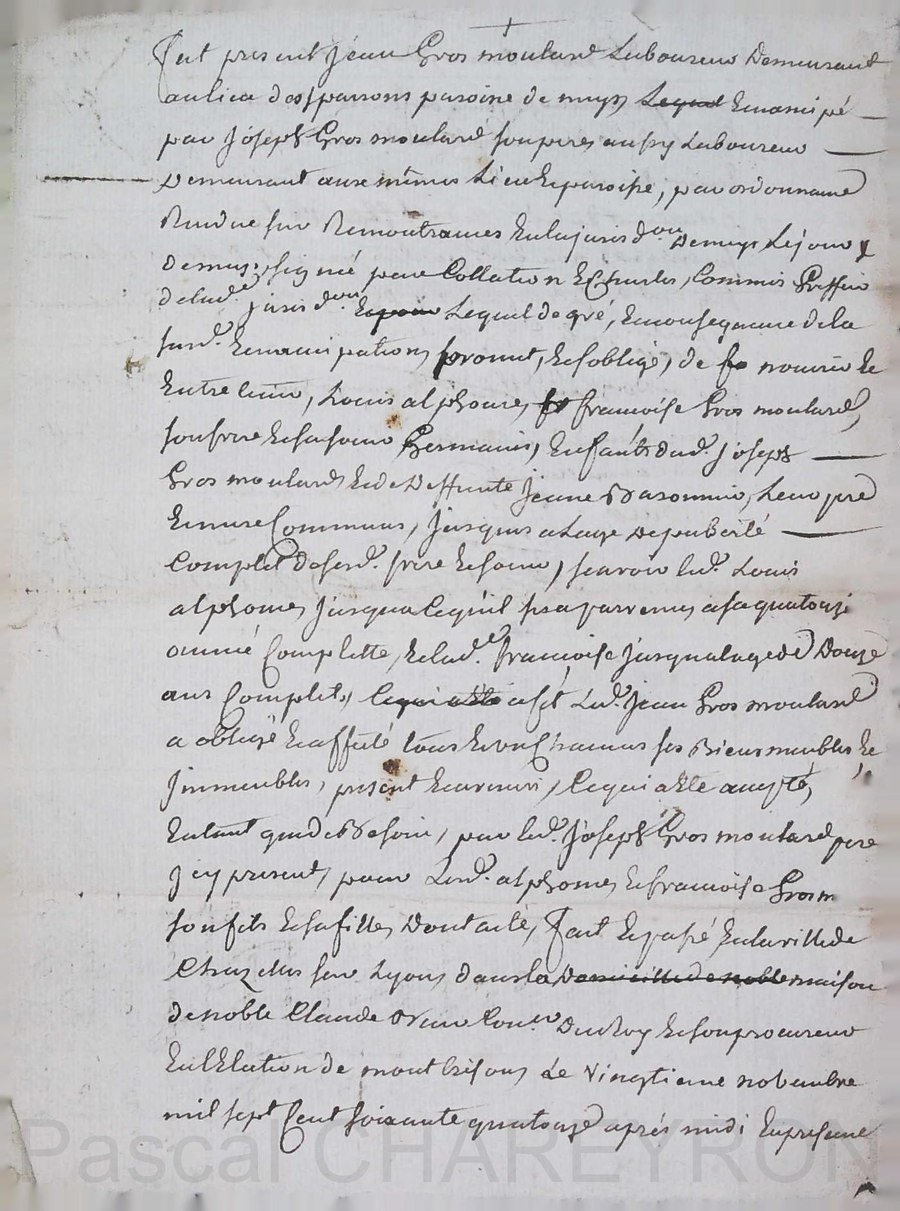 fut present Jean Gros moulard Laboureur Demeurant
au lieu des parrons paroisse de meys Lequel Emancipé
par Joseph Gros moulard son pere aussy Laboureur
Demeurant aux mêmes Lieu et paroisse, par ordonnance
Rendue sur Remontrances En la jurisd.on De meys Le jour
de meys, signé par Collation Charles, Commis Greffier
de lad.e jurisd.on Lequel de gré, En consequence de la
susd.e Emancipation, promet, et s'oblige, de nourrir et
Entretenir, Louis alphonce, françoise Gros moulard,
son frere et sa soeur Germains, Enfants dud. joseph
Gros moulard, et de Deffunte jeanne, Leur pere
et mere Communs, jusques a Lage De puberté
Complet de sesd. frere et soeur, scavoir led. Louis
alphonce, jusqu'a ce qu'il sera parvenu a sa quatorze
année Complette, et lad.e francoise jusqu'a lage de Douze
ans Complets, a cet effet Led. jean Gros moulard
a obligé et affecté tous et un Chacuns ses Biens meubles et
jmmeubles, present et avenir, Ce qui a Eté accepté,
En tant que de Besoin, par led. joseph Gros moulard pere
jcy present, pour Lesd. alphonce, et francoise Gros m
son fils et sa fille, Dont acte, fait et passé En la ville de
Chazelles sur Lyon, dans la Domicille de noble maison
de noble Claude Con.er Du Roy et son procureur
En l'Election de montbrison, Le vingtieme novembre
mil sept Cent soixante quatorze après midi En presence
Pascal CHAREYRON